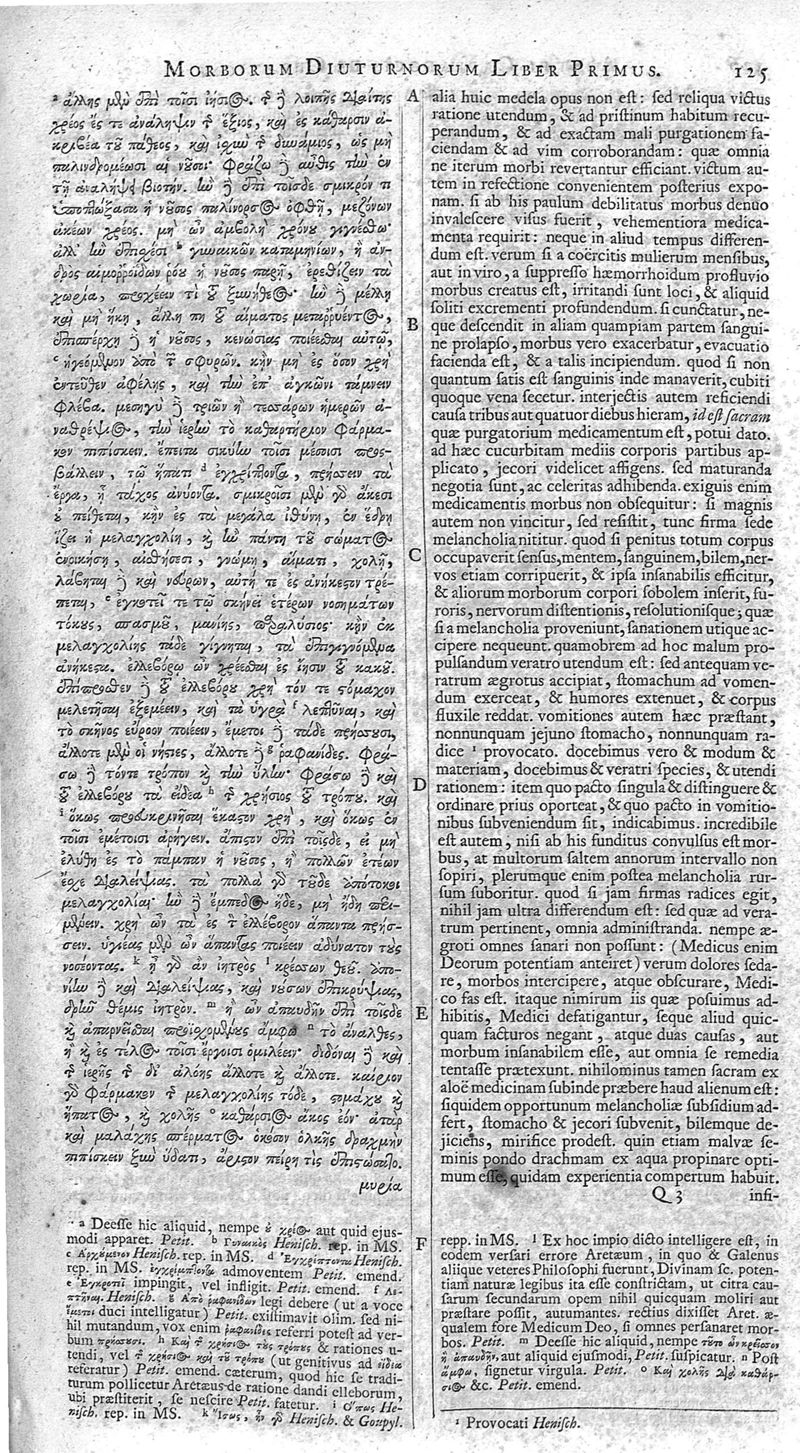 MORBORUM DIUTURNORUM LIBER PRIMUS. 125
ἄλλης μὲν ἐπὶ τοῖσι ἰήσιος. τῆς δὲ λοιπῆς διαίτης
χρέος ἔς τε ἀνάληψιν τῆς ἕξιος, καὶ ἐς κάθαρσιν ἀ-
κριβέα τοῦ πάθεος, καὶ ἰσχὺν δυνάμιος, ὡς μὴ
παλινδρομέωσι αἱ νοῦσοι· φράζω δὲ αὖθις τὴν ἐν
τῇ ἀναλήψι βιοτήν. ἢν δὲ ἐπὶ τοῖσδε σμικρόν τι
ἡ νοῦσος παλίνορσος ὀφθῇ, μεζόνων
ἀκέων χρέος. μὴ ὦν ἀμβολὴ χρόνου γιγνέσθω·
ἀλλ' ἢν ἐπισχέσι γυναικῶν καταμηνίων, ἢ ἀν-
δρὸς αἱμορροΐδων ῥόου ἡ νοῦσος παρῇ, ἐρεθίζειν τὰ
χωρία, προχέειν τι τοῦ ξυνήθεος· ἢν δὲ μέλλῃ
καὶ μὴ ἥκῃ, ἄλλῃ πῃ τοῦ αἵματος μεταρρυέντος,
ἐπισπέρχῃ δὲ ἡ νοῦσος, κενώσιας ποιέεσθαι αὐτῷ,
ἡγεόμενον ἀπὸ τῶν σφυρῶν. κἢν μὴ ἐς ὅσον χρὴ
ἐντεῦθεν ἀφέλῃς, καὶ τὴν ἐπ' ἀγκῶνι τάμνειν
φλέβα. μεσηγὺ δὲ τριῶν ἢ τεσσάρων ἡμερῶν ἀ-
ναθρέψιος, τὴν ἱερὴν τὸ καθαρτήριον φάρμα-
κον πιπίσκειν. ἔπειτα σικύην τοῖσι μέσοισι προσ-
βάλλειν, τῷ ἥπατι ἐγχρίπτοντα, πρήσσειν τὰ
ἔργα, ἢ τάχος ἀνύοντα. σμικροῖσι μὲν γὰρ ἄκεσι
οὐ πείθεται, κἢν ἐς τὰ μεγάλα ἰθύνῃ, ἐν ἕδρῃ
ἵζει ἡ μελαγχολίη, καὶ ἢν πάντη τοῦ σώματος
ἐνοικήσῃ, αἰσθήσεσι, γνώμῃ, αἵματι, χολῇ,
λάβηται δὲ καὶ νεύρων, αὐτή τε ἐς ἀνήκεστον τρέ-
πεται, τε τῷ σκήνεϊ ἑτέρων νοσημάτων
τόκους, σπασμοὺς, μανίης, παραλύσιος· κἢν ἐκ
μελαγχολίης τάδε γίγνηται, τὰ ἐπιγιγνόμενα
ἀνήκεστα. ἐλλεβόρῳ ὦν χρέεσθαι ἐς ἴησιν τοῦ κακοῦ.
ἐπίπροσθεν δὲ τοῦ ἐλλεβόρου χρὴ τόν τε στόμαχον
μελετῆσαι ἐξεμέειν, καὶ τὰ ὑγρὰ λεπτῦναι, καὶ
τὸ σκῆνος εὔροον ποιέειν, ἔμετοι δὲ τάδε πρήσσουσι,
ἄλλοτε μὲν οἱ νήστιες, ἄλλοτε δὲ ῥαφανίδες. φρά-
σω δὲ τόντε τρόπον καὶ τὴν ὕλην· φράσω δὲ καὶ
τοῦ ἐλλεβόρου τὰ εἴδεα τῆς χρήσιος τοῦ τρόπου. καὶ
ὅκως προδιακρινῆσαι ἕκαστον χρὴ, καὶ ὅκως ἐν
τοῖσι ἐμέτοισι ἀρήγειν. ἄπιστον ἐπὶ τοῖσδε, εἰ μὴ
ἐλύθη ἐς τὸ πάμπαν ἡ νοῦσος, ἢ πολλῶν ἐτέων
ἔσχε διαλείψιας. τὰ πολλὰ γὰρ τῶνδε ὑπότοκοι
μελαγχολίαι· ἢν δὲ ἔμπεδος ᾖδε, μὴ ἤδη περι-
μένειν. χρὴ ὦν τὰ ἐς τὸν ἐλλέβορον ἅπαντα πρήσ-
σειν. ὑγιέας μὲν ὦν ἅπαντας ποιέειν ἀδύνατον τοὺς
νοσέοντας. ἦ γὰρ ἂν ἰητρὸς κρέσσων θεοῦ. ἀπο-
νίην καὶ διαλείψιας, καὶ νούσων ἐπικρύψιας,
δρῆν θέμις ἰητρόν. ἢ ὦν ἀπαυδῆν ἐπὶ τοῖσδε
καὶ ἀπαρνέεσθαι προϊσχομένους ἄμφω τὸ ἀναλθὲς,
ἢ καὶ ἐς τέλος τοῖσι ἔργοισι ὁμιλέειν· διδόναι δὲ καὶ
τῆς ἱερῆς τῆς δι' ἀλόης ἄλλοτε καὶ ἄλλοτε. καίριον
γὰρ φάρμακον τῆς μελαγχολίης τόδε, στομάχου καὶ
ἥπατος, καὶ χολῆς καθάρσιος ἄκος ἐόν· ἀτὰρ
καὶ μαλάχης σπέρματος ὁκόσον ὁλκῆς δραχμὴν
πιπίσκειν ξὺν ὕδατι, ἄριστον πείρῃ τις ἐπιστώσατο.
μυρία
A
B
C
D
E
F
alia huic medela opus non est: sed reliqua victus
ratione utendum, & ad pristinum habitum recu-
perandum, & ad exactam mali purgationem fa-
ciendam & ad vim corroborandam: quæ omnia
ne iterum morbi revertantur efficiant. victum au-
tem in refectione convenientem posterius expo-
nam. si ab his paulum debilitatus morbus denuo
invalescere visus fuerit, vehementiora medica-
menta requirit: neque in aliud tempus differen-
dum est. verum si a coërcitis mulierum mensibus,
aut in viro, a suppresso hæmorrhoidum profluvio
morbus creatus est, irritandi sunt loci, & aliquid
soliti excrementi profundendum. si cunctatur, ne-
que descendit in aliam quampiam partem sangui-
ne prolapso, morbus vero exacerbatur, evacuatio
facienda est, & a talis incipiendum. quod si non
quantum satis est sanguinis inde manaverit, cubiti
quoque vena secetur. interjectis autem reficiendi
causa tribus aut quatuor diebus hieram, id est sacram
quæ purgatorium medicamentum est, potui dato.
ad hæc cucurbitam mediis corporis partibus ap-
plicato, jecori videlicet affigens. sed maturanda
negotia sunt, ac celeritas adhibenda. exiguis enim
medicamentis morbus non obsequitur: si magnis
autem non vincitur, sed resistit, tunc firma sede
melancholia nititur. quod si penitus totum corpus
occupaverit sensus, mentem, sanguinem, bilem, ner-
vos etiam corripuerit, & ipsa insanabilis efficitur,
& aliorum morborum corpori sobolem inserit, fu-
roris, nervorum distentionis, resolutionisque; quæ
si a melancholia proveniunt, sanationem utique ac-
cipere nequeunt. quamobrem ad hoc malum pro-
pulsandum veratro utendum est: sed antequam ve-
ratrum ægrotus accipiat, stomachum ad vomen-
dum exerceat, & humores extenuet, & corpus
fluxile reddat. vomitiones autem hæc præstant,
nonnunquam jejuno stomacho, nonnunquam ra-
dice ¹ provocato. docebimus vero & modum &
materiam, docebimus & veratri species, & utendi
rationem: item quo pacto singula & distinguere &
ordinare prius oporteat, & quo pacto in vomitio-
nibus subveniendum sit, indicabimus. incredibile
est autem, nisi ab his funditus convulsus est mor-
bus, at multorum saltem annorum intervallo non
sopiri, plerumque enim postea melancholia rur-
sum suboritur. quod si jam firmas radices egit,
nihil jam ultra differendum est: sed quæ ad vera-
trum pertinent, omnia administranda. nempe æ-
groti omnes sanari non possunt: (Medicus enim
Deorum potentiam anteiret) verum dolores seda-
re, morbos intercipere, atque obscurare, Medi-
co fas est. itaque nimirum iis quæ posuimus ad-
hibitis, Medici defatigantur, seque aliud quic-
quam facturos negant, atque duas causas, aut
morbum insanabilem esse, aut omnia se remedia
tentasse prætexunt. nihilominus tamen sacram ex
aloë medicinam subinde præbere haud alienum est:
siquidem opportunum melancholiæ subsidium ad-
fert, stomacho & jecori subvenit, bilemque de-
jiciens, mirifice prodest. quin etiam malvæ se-
minis pondo drachmam ex aqua propinare opti-
mum esse, quidam experientia compertum habuit.
Q 3 insi-
a Deesse hic aliquid, nempe οὐ χρέος aut quid ejus-
modi apparet. Petit. b Γυναικὸς Henisch. rep. in MS.
c Ἀρχόμενοι Henisch. rep. in MS. d Ἐγχρίπτοντα Henisch.
rep. in MS. admoventem Petit. emend.
e impingit, vel infligit. Petit. emend. f
Henisch. g Ἀπὸ ῥαφανίδων legi debere (ut a voce
ἔμετοι duci intelligatur) Petit. existimavit olim. sed ni-
hil mutandum, vox enim ῥαφανίδες referri potest ad ver-
bum πρήσσουσι. h Καὶ τῆς χρήσιος τοὺς τρόπους & rationes u-
tendi, vel τῆς χρήσιος καὶ τοῦ τρόπου (ut genitivus ad εἴδεα
referatur) Petit. emend. cæterum, quod hic se tradi-
turum pollicetur Aretæus de ratione dandi elleborum,
ubi præstiterit, se nescire Petit. fatetur. i Ὅπως He-
nisch. rep. in MS. k Ἴσως, ἦν γὰρ Henisch. & Goupyl.
repp. in MS. l Ex hoc impio dicto intelligere est, in
eodem versari errore Aretæum, in quo & Galenus
aliique veteres Philosophi fuerunt, Divinam sc. poten-
tiam naturæ legibus ita esse constrictam, ut citra cau-
sarum secundarum opem nihil quicquam moliri aut
præstare possit, autumantes. rectius dixisset Aret. æ-
qualem fore Medicum Deo, si omnes persanaret mor-
bos. Petit. m Deesse hic aliquid, nempe
ἢ ἀπαυδῆν, aut aliquid ejusmodi, Petit. suspicatur. n Post
ἄμφω, signetur virgula. Petit. o Καὶ χολῆς διὰ καθάρ-
σιος &c. Petit. emend.
¹ Provocati Henisch.